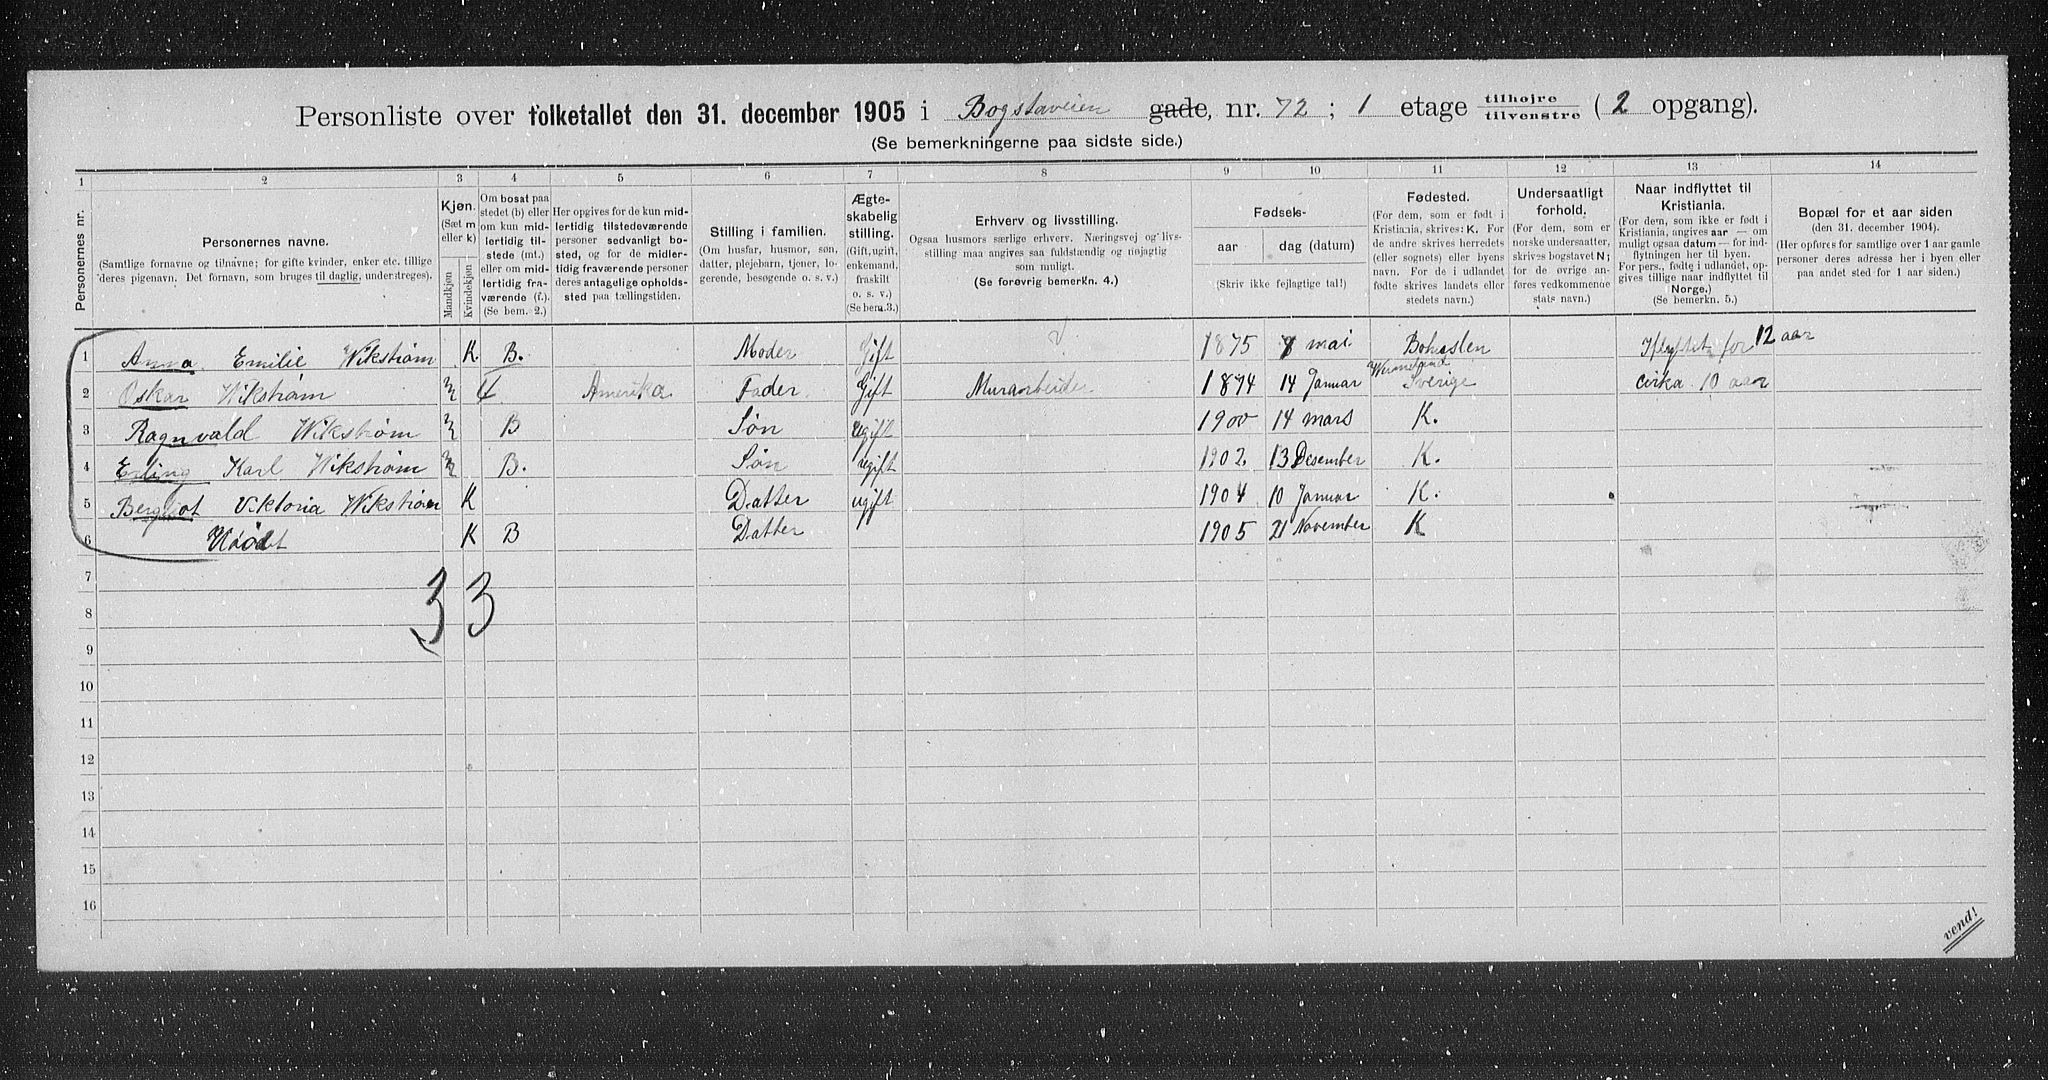 Personliste over folketallet den 31. december 1905 i Bogstaveien gade, nr. 72; 1 etage tilhøjre tilvenstre (2 opgang).
(Se bemerkningerne paa sidste side.)
1 2 3 4 5 6 7 8 9 10 11 12 13 14
Personernes nr.
Personernes navne.
(Samtlige fornavne og tilnavne; for gifte kvinder, enker etc. tillige
deres pigenavn. Det fornavn, som bruges til daglig, understreges).
Kjøn.
(Sæt m
eller k)
Mandkjøn
Kvindekjøn
Om bosat paa
stedet (b) eller
om kun mid-
lertidig til-
stede (mt.)
eller om mid-
lertidig fra-
værende (f.).
(Se bem. 2.)
Her opgives for de kun mid-
lertidig tilstedeværende
personer sedvanlig bo-
sted, og for de midler-
tidig fraværende personer
deres antagelige opholds-
sted paa tællingstiden.
Stilling i familien.
(Om husfar, husmor, søn,
datter, plejebarn, tjener, lo-
gerende, besøgende o. s. v.)
Ægte-
skabelig
stilling.
(Gift, ugift,
enkemand,
fraskilt
o. s. v.)
(Se bem. 3.)
Erhverv og livsstilling.
Ogsaa husmors særlige erhverv. Næringsvej og livs-
stilling maa angives saa fuldstændig og nøjagtig
som muligt.
(Se forøvrig bemerkn. 4.)
Fødsels-
aar
dag (datum)
(Skriv ikke fejlagtige tal!)
Fødested.
(For dem, som er født i
Kristiania, skrives: K. For
de andre skrives herredets
(eller sognets) eller byens
navn. For de i udlandet
fødte skrives landets eller
stedets navn.)
Undersaatligt
forhold.
(For dem, som er
norske undersaatter,
skrives bogstavet N;
for de øvrige an-
føres vedkommende
stats navn.)
Naar indflyttet til
Kristiania.
(For dem, som ikke er født i
Kristiania, angives aar — om
muligt ogsaa datum — for ind-
flytningen her til byen.
For pers., fødte i udlandet, op-
gives tillige naar indflyttet til
Norge.)
(Se bemerkn. 5.)
Bopæl for et aar siden
(den 31. december 1904).
(Her opføres for samtlige over 1 aar gamle
personer deres adresse her i byen eller
paa andet sted for 1 aar siden.)
1 Anna Emilie Wikstrøm K B. Moder Gift 1875 8 mai Bohuslen for 12 aar
2 Oskar Wikstrøm m f Amerika Fader Gift Murarbeider 1874 14 Januar Wermeland Sverige cirka 10 aar
3 Ragnvald Wikstrøm m B Søn ugift 1900 14 mars K.
4 Erling Karl Wikstrøm m B. Søn ugift 1902. 13 Desember K.
5 Bergliot Viktoria Wikstrøm K Datter ugift 1904 10 Januar K.
6 Udøbt K B Datter 1905 21 November K
7
8 3 3
9
10
11
12
13
14
15
16
vend!